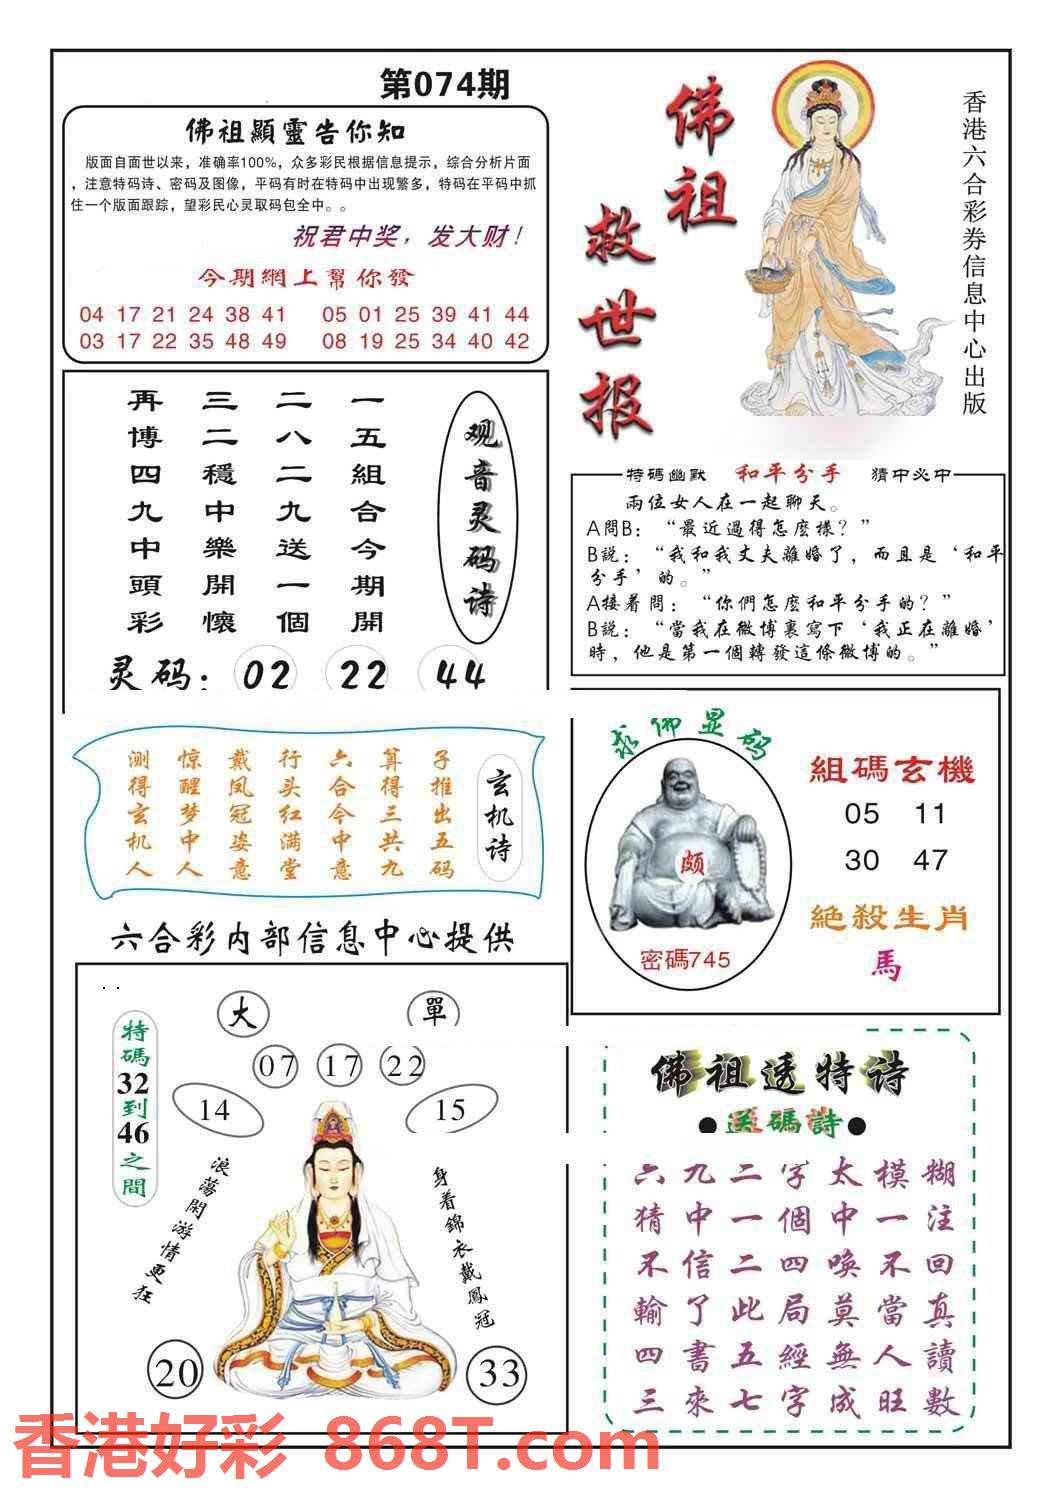 第074期
佛祖顯靈告你知
版面自面世以来，准确率100%，众多彩民根据信息提示，综合分析片面
，注意特码诗、密码及图像，平码有时在特码中出现繁多，特码在平码中抓
住一个版面跟踪，望彩民心灵取码包全中。。
祝君中奖，发大财！
今期網上幫你發
04 17 21 24 38 41 05 01 25 39 41 44
03 17 22 35 48 49 08 19 25 34 40 42
佛祖
救世报
香港六合彩券信息中心出版
观音灵码诗
一五組合今期開
二八二九送一個
三二穩中樂開懷
再博四九中頭彩
灵码：02 22 44
特碼幽默 和平分手 猜中必中
兩位女人在一起聊天。
A問B：“最近過得怎麽樣？”
B説：“我和我丈夫離婚了，而且是‘和平
分手’的。”
A接着問：“你們怎麽和平分手的？”
B説：“當我在微博裏寫下‘我正在離婚’
時，他是第一個轉發這條微博的。”
玄机诗
子推出五码
算得三共九
六合今中意
行头红满堂
戴凤冠姿意
惊醒梦中人
测得玄机人
求佛显码
颇
密碼745
組碼玄機
05 11
30 47
絕殺生肖
馬
六合彩内部信息中心提供
大 單
特碼32到46之間
07 17 22
14 15
浪蕩閑游情更狂
身着錦衣戴鳳冠
20 33
佛祖透特诗
送碼詩
六九二字太模糊
猜中一個中一注
不信二四喚不回
輸了此局莫當真
四書五經無人讀
三來七字成旺數
香港好彩 868T.com